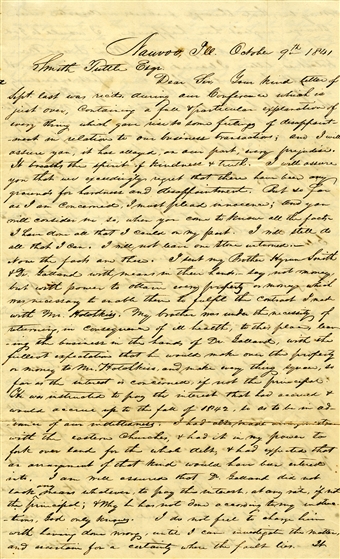 Nauvoo, Ill. October 9th 1841
Smith Tuttle Esqr
Dear Sir Your kind letter of
Sept last was recd. during our Conference which is
just over, Containing a full & particular explanation of
every thing which gave rise to some feelings of disappoint-
ment in relation to our business transactions; and I will
assure you, it has allayed, on our part, every prejudice.
It breaths the spirit of kindness & truth. I will assure
you that we exceedingly regret that there has been any
grounds for hardness and disappointment. But so far
as I am Concerned, I must plead innocence; And you
will consider me so, when you come to know all the facts.
I have done all that I could on my part. I will still do
all that I can. I will not leave one stone unturned.
Now the facts are these. I sent my Brother Hyrum Smith
& Dr Galland with means in their hands, say not money
but with power to obtain every property or money which
was necessary to enable them to fulfil the contract I made
with Mr. Hotchkiss. My brother was under the necessity of
returning, in Consequence of ill health, to this place, leav-
ing the business in the hands of Dr. Galland, with the
fullest expectation that he would make over the property
or money to Mr. Hotchkiss, and make every thing square, so
far as the interest is concerned, if not the principal.
He was instructed to pay the interest that had accrued &
would accrue up to the fall of 1842, so as to be in ad-
vance of our indebtedness. I had also made arrangements
with the eastern Churches, & had it in my power to
deed over land for the whole debt, & had expected that
an arrangement of that kind would have been entered
into. I am well assured that Dr. Galland did not
lack any means whatever, to pay the interest, at any rate, if not
the principal; & Why he has not done according to my instruc-
tions, God only knows. I do not feel to charge him
with having done wrong, until I can investigate the matter,
and ascertain for a certainty where the fault lies. It